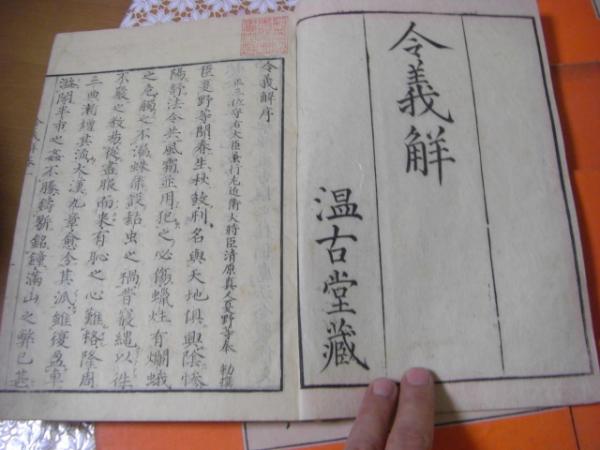 令義解
温古堂藏
令義解序
正三位守右大臣兼行左近衛大將臣清原真人夏野等奉 勅撰
臣夏野等聞春生秋殺刑名與天地俱興陰慘
陽舒法令共風霜並用犯之必傷蠟炷有爛蛾
之危觸之不漏蛛絲設黏虫之禍昔寢繩以往
不嚴之教易從畫服而來有恥之心難格隆周
三典漸增其流大漢九章愈分其派雖復盈車
溢閭半市之姦不勝鑄鼎銘鐘滿山之弊已甚